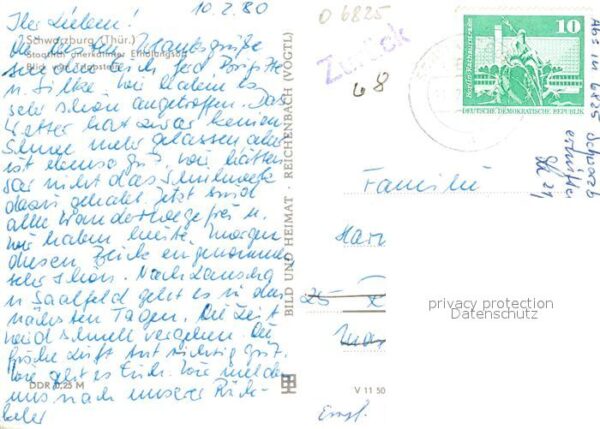 10.2.80
Ihr Lieben!
Schwarzburg (Thür.)
Staatlich anerkannter Erholungsort
Blick vom Trippstein
Die besten Urlaubsgrüße
senden Euch Gerd, Brigitte
u. Silke. Wir haben es
sehr schön angetroffen. Das
Wetter hat zwar keinen
Schnee mehr gelassen aber
ist ebenso gut. Wir hätten
gar nicht das Schuhwerk
dazu gehabt. Jetzt sind
alle Wanderwege frei u.
wir haben heute Morgen
diesen Blick eingenommen
sehr schön. Nach
u. Saalfeld geht es in den
nächsten Tagen. Die Zeit
wird schnell vergehen. Die
frische Luft tut richtig gut.
Wie geht es Euch. Wir melden
uns nach unserer Rück-
kehr
DDR 0,25 M
BILD UND HEIMAT · REICHENBACH (VOGTL)
V 11 50
O 6825
Zurück
68
10
DEUTSCHE DEMOKRATISCHE REPUBLIK
Abs. in 6825 Schwarzb
Familie
Harr
25
privacy protection
Datenschutz